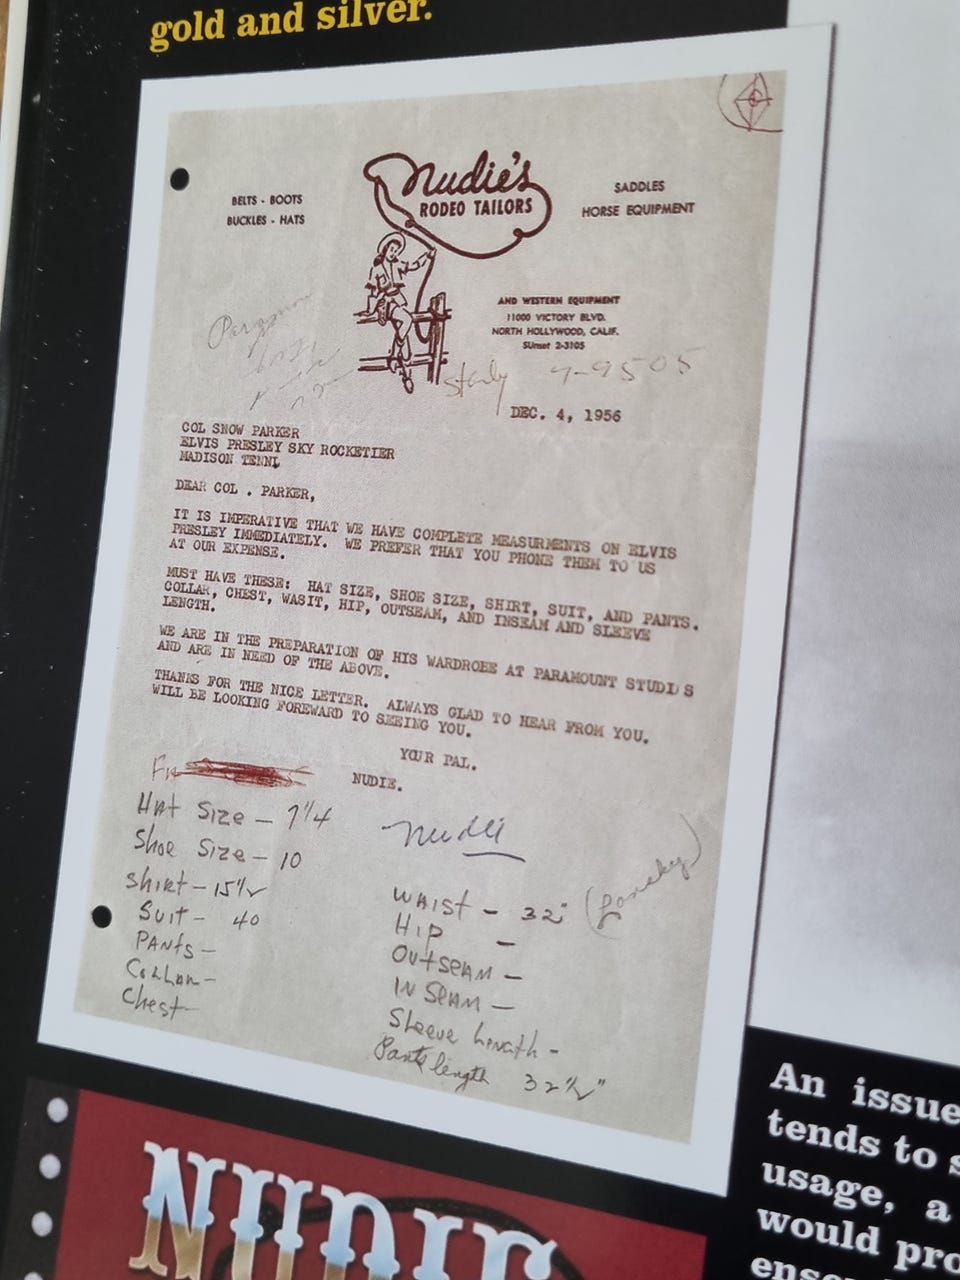 gold and silver.
Nudie's
RODEO TAILORS
BELTS - BOOTS
BUCKLES - HATS
SADDLES
HORSE EQUIPMENT
AND WESTERN EQUIPMENT
11000 VICTORY BLVD.
NORTH HOLLYWOOD, CALIF.
SUnset 2-3105
9-9505
DEC. 4, 1956
COL SNOW PARKER
ELVIS PRESLEY SKY ROCKETIER
MADISON TENN.
DEAR COL . PARKER,
IT IS IMPERATIVE THAT WE HAVE COMPLETE MEASURMENTS ON ELVIS
PRESLEY IMMEDIATELY. WE PREFER THAT YOU PHONE THEM TO US
AT OUR EXPENSE.
MUST HAVE THESE: HAT SIZE, SHOE SIZE, SHIRT, SUIT, AND PANTS.
COLLAR, CHEST, WASIT, HIP, OUTSEAM, AND INSEAM AND SLEEVE
LENGTH.
WE ARE IN THE PREPARATION OF HIS WARDROBE AT PARAMOUNT STUDIS
AND ARE IN NEED OF THE ABOVE.
THANKS FOR THE NICE LETTER. ALWAYS GLAD TO HEAR FROM YOU.
WILL BE LOOKING FOREWARD TO SEEING YOU.
YOUR PAL.
NUDIE.
Nudie
Hat Size - 7 1/4
Shoe Size - 10
Shirt - 15 1/2
Suit - 40
Pants -
Collar -
Chest -
Waist - 32" (Lansky)
Hip -
Outseam -
Inseam -
Sleeve Length -
Pants length 32 1/2"
NUDIE
An issue
tends to s
usage, a
would pro